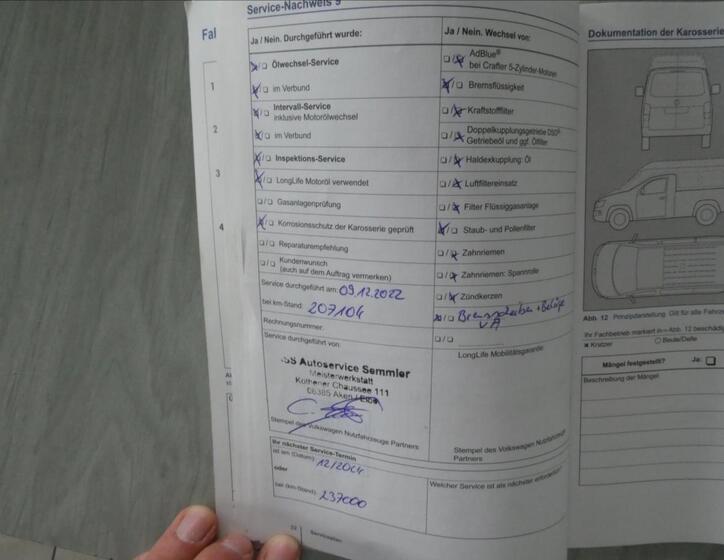 Service-Nachweis 9
Fal
1
2
3
4
Ja / Nein. Durchgeführt wurde:
Ölwechsel-Service
im Verbund
Intervall-Service
inklusive Motorölwechsel
im Verbund
Inspektions-Service
LongLife Motoröl verwendet
Gasanlagenprüfung
Korrosionsschutz der Karosserie geprüft
Reparaturempfehlung
Kundenwunsch
(auch auf dem Auftrag vermerken)
Service durchgeführt am: 09.12.2022
bei km-Stand: 207104
Rechnungsnummer:
Service durchgeführt von:
SS Autoservice Semmler
Meisterwerkstatt
Köthener Chaussee 111
06385 Aken / Elbe
Stempel des Volkswagen Nutzfahrzeuge Partners
Ihr nächster Service-Termin
ist am (Datum):
oder
bei (km-Stand): 237000
Ja / Nein. Wechsel von:
AdBlue®
bei Crafter 5-Zylinder-Motoren
Bremsflüssigkeit
Kraftstofffilter
Doppelkupplungsgetriebe DSG®:
Getriebeöl und ggf. Ölfilter
Haldexkupplung: Öl
Luftfiltereinsatz
Filter Flüssiggasanlage
Staub- und Pollenfilter
Zahnriemen
Zahnriemen: Spannrolle
Zündkerzen
Bremsscheiben + Beläge
VA
LongLife Mobilitätsgarantie
Stempel des Volkswagen Nutzfahrzeuge
Partners
Welcher Service ist als nächster erforderlich?
22 Serviceplan
Dokumentation der Karosserie
Abb. 12 Prinzipdarstellung: Gilt für alle Fahrze
Ihr Fachbetrieb markiert in Abb. 12 beschädig
Kratzer Beule/Delle
Mängel festgestellt? Ja:
Beschreibung der Mängel: